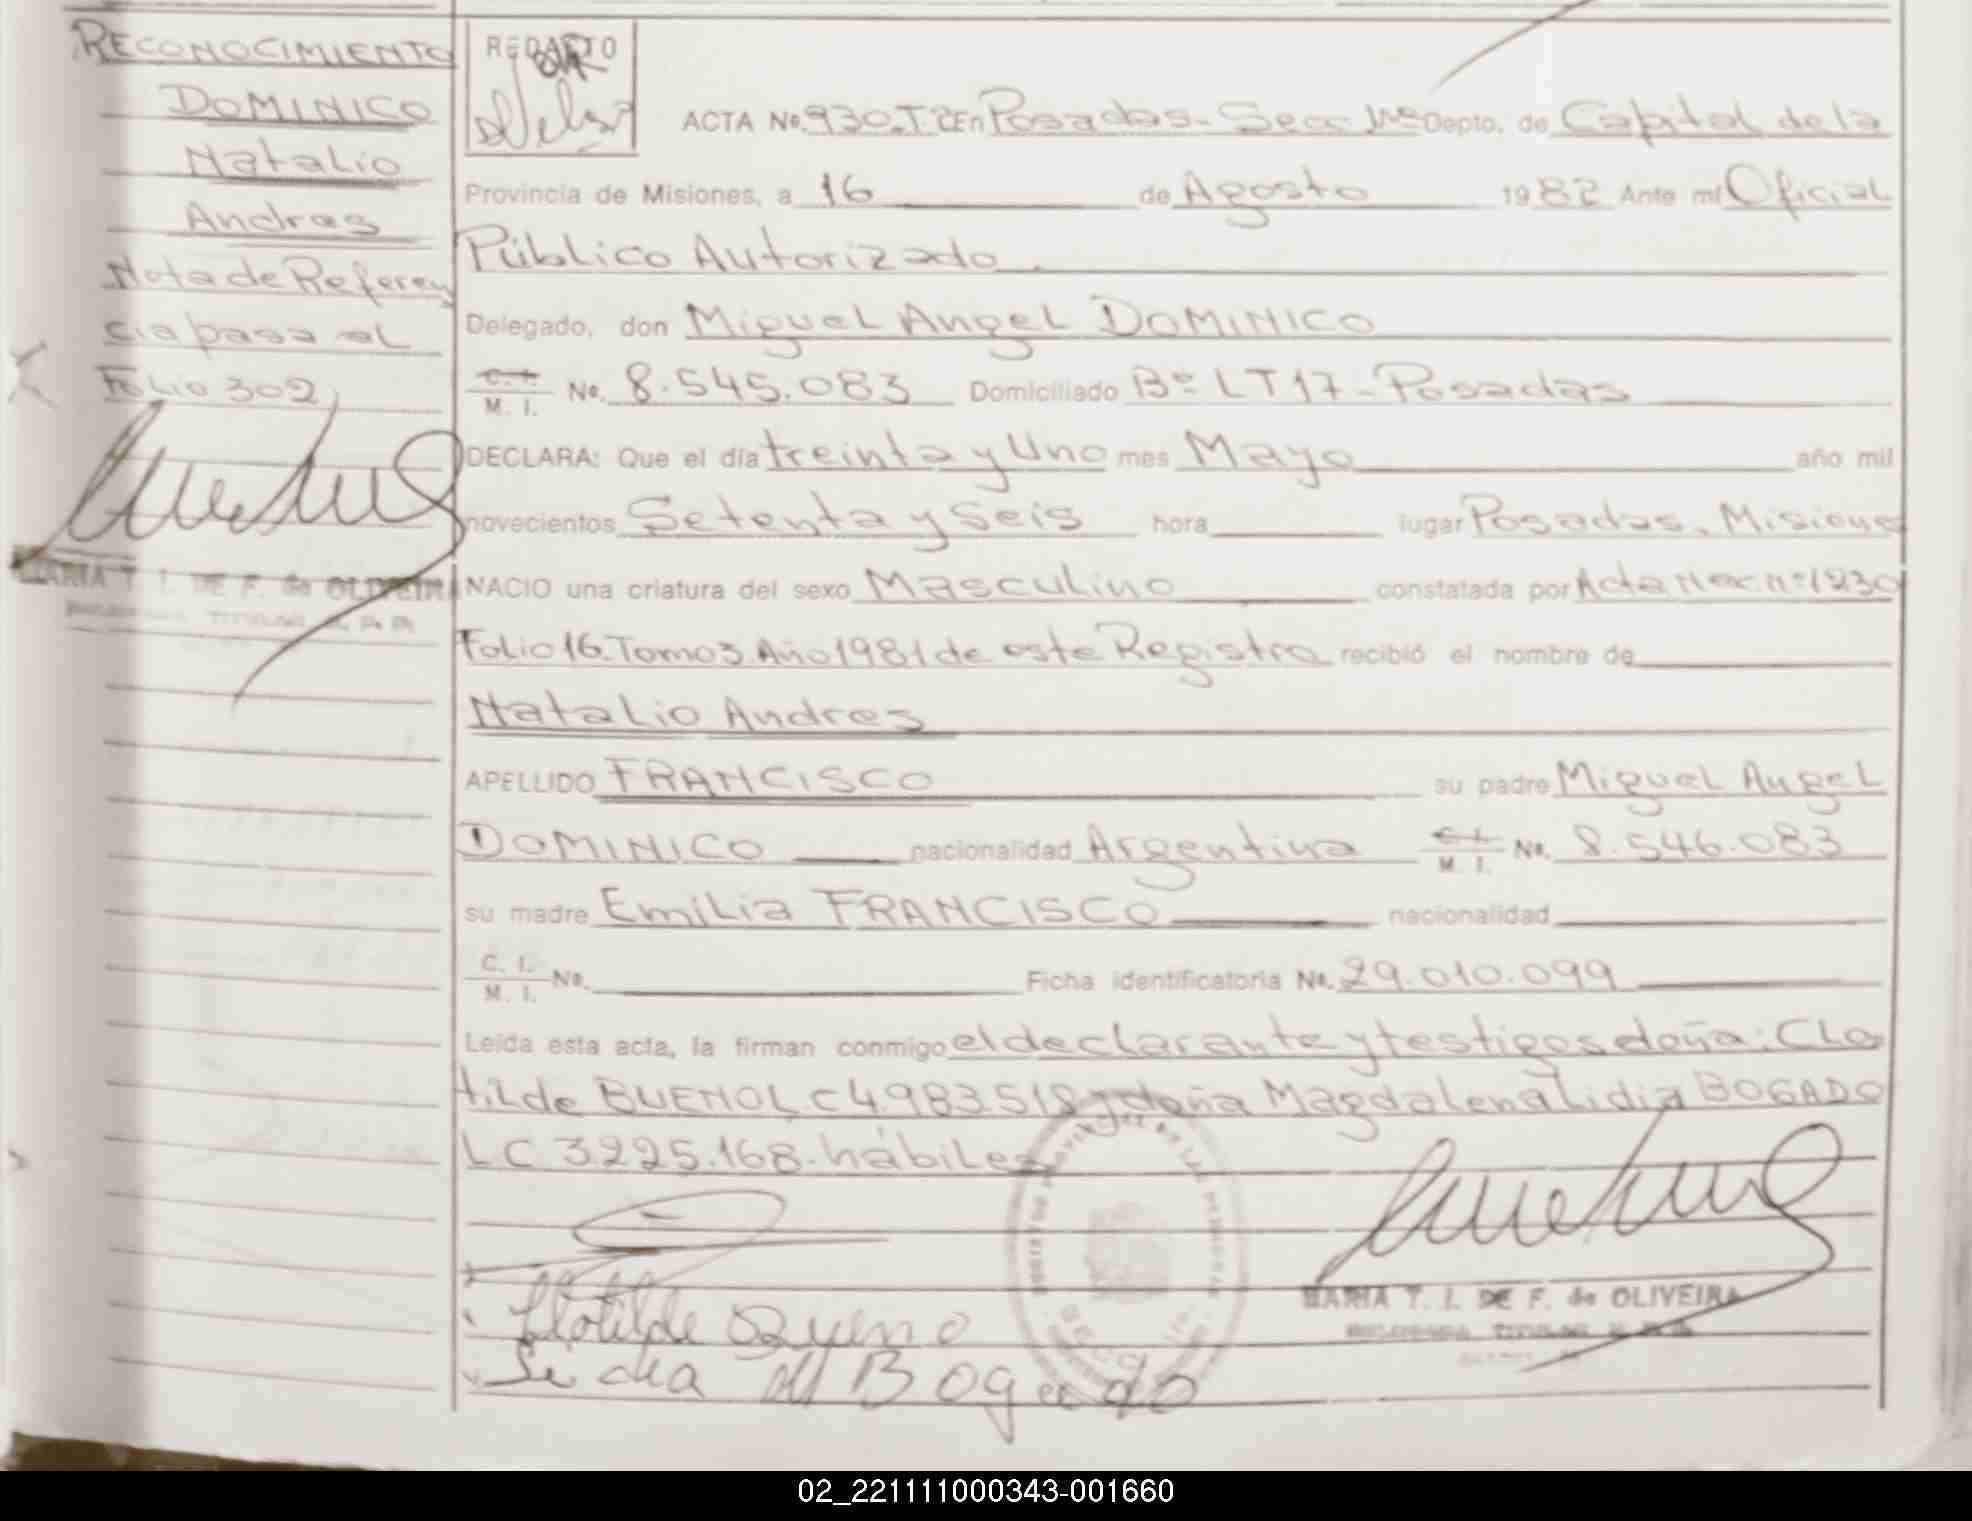 RECONOCIMIENTO
DOMINICO
Natalio
Andres
Nota de Referen
cia pasa al
Folio 302
MARIA T. I. DE F. de OLIVEIRA
REDACTO
ACTA No. 930. T. 2 En Posadas - Secc. 1ra Depto. de Capital de la
Provincia de Misiones, a 16 de Agosto 1982 Ante mí Oficial
Público Autorizado
Delegado, don Miguel Angel DOMINICO
C. I. M. I. No. 8.545.083 Domiciliado Bº LT 17 - Posadas
DECLARA: Que el día treinta y Uno mes Mayo año mil
novecientos Setenta y Seis hora lugar Posadas. Misiones
NACIO una criatura del sexo Masculino constatada por Acta Nac. nº 1230
Folio 16. Tomo 3. Año 1981 de este Registro recibió el nombre de
Natalio Andres
APELLIDO FRANCISCO su padre Miguel Angel
DOMINICO nacionalidad Argentina C. I. M. I. No. 8.546.083
su madre Emilia FRANCISCO nacionalidad
C. I. M. I. No. Ficha identificatoria No. 29.010.099
Leida esta acta, la firman conmigo el declarante y testigos doña: Clo
tilde BUENO L.C 4.983.518 y doña Magdalena Lidia BOGADO
LC 3.225.168. hábiles
Clotilde Bueno
Lidia M Bogado
MARIA T. I. DE F. de OLIVEIRA
02_221111000343-001660